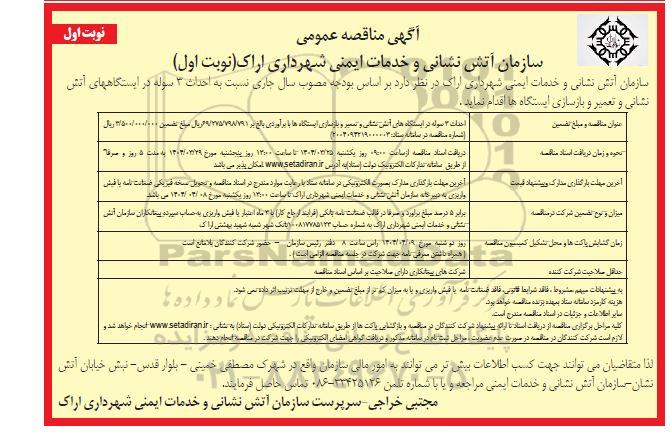 نوبت اول
آگهی مناقصه عمومی
سازمان آتش نشانی و خدمات ایمنی شهرداری اراک(نوبت اول)
سازمان آتش نشانی و خدمات ایمنی شهرداری اراک در نظر دارد بر اساس بودجه مصوب سال جاری نسبت به احداث ۳ سوله در ایستگاههای آتش
نشانی و تعمیر و بازسازی ایستگاه ها اقدام نماید.
عنوان مناقصه و مبلغ تضمین
احداث ۳ سوله در ایستگاه های آتش نشانی و تعمیر و بازسازی ایستگاه ها با برآوردی بالغ بر ۶۹/۲۷۵/۷۹۸/۷۹۱ ریال مبلغ تضمین ۳/۵۰۰/۰۰۰/۰۰۰ ریال
(شماره مناقصه در سامانه ستاد:۲۰۰۴۰۹۴۲۱۹۰۰۰۰۰۳)
نحوه و زمان دریافت اسناد مناقصه
دریافت اسناد مناقصه ازساعت ۰۹:۰۰ روز یکشنبه ۱۴۰۴/۰۳/۲۵ تا ساعت ۱۳:۰۰ روز پنجشنبه مورخ ۱۴۰۴/۰۳/۲۹ به مدت ۵ روز و صرفا"
از طریق سامانه تدارکات الکترونیک دولت (ستاد)به آدرس www.setadiran.ir امکان پذیر می باشد
آخرین مهلت بارگذاری مدارک وپیشنهاد قیمت
آخرین مهلت بارگذاری مدارک بصورت الکترونیکی در سامانه ستاد با رعایت موارد مندرج در اسناد مناقصه و تحویل نسخه فیزیکی ضمانت نامه یا فیش
واریزی به دبیرخانه سازمان آتش نشانی و خدمات ایمنی شهرداری اراک تا ساعت ۱۳:۰۰ روز یکشنبه مورخ ۱۴۰۴/۰۴/۰۸ می باشد.
میزان و نوع تضمین شرکت در مناقصه
برابر ۵ درصد مبلغ برآورد و صرفا در قالب ضمانت نامه بانکی (فرایند ارجاع کار) با ۳ ماه اعتبار یا فیش واریزی به حساب سپرده پیمانکاران سازمان آتش
نشانی و خدمات ایمنی شهرداری اراک به شماره حساب ۱۰۰۸۱۷۷۸۵۱۳۳ بانک شهر شعبه شهید بهشتی اراک
زمان گشایش پاکت ها و محل تشکیل کمیسیون مناقصه
روز دو شنبه مورخ ۱۴۰۴/۰۴/۰۹ راس ساعت ۸ دفتر رئیس سازمان – حضور شرکت کنندگان بلامانع است
( همراه داشتن معرفی نامه جهت شرکت در جلسه مناقصه الزامی است ) .
حداقل صلاحیت شرکت کننده
شرکت های پیمانکاری دارای صلاحیت بر اساس اسناد مناقصه
به پیشنهادات مبهم مشروط ، فاقد شرایط قانونی، فاقد ضمانت نامه یا فیش واریزی و یا به میزان کم تر از مبلغ تضمین و خارج از مهلت ترتیب اثر داده نمی شود.
هزینه کارمزد سامانه ستاد بعهده برنده مناقصه خواهد بود.
سایر اطلاعات و جزئیات در اسناد مناقصه مندرج است.
کلیه مراحل برگزاری مناقصه از دریافت اسناد تا ارائه پیشنهاد شرکت کنندگان در مناقصه و بازگشایی پاکت ها از طریق سامانه تدارکات الکترونیکی دولت (ستاد) به نشانی : www.setadiran.ir انجام خواهد شد و
لازم است شرکت کنندگان در مناقصه در صورت عدم عضویت ، مراحل ثبت نام در سامانه مذکور و دریافت گواهی امضای الکترونیکی را جهت شرکت در مناقصه انجام دهند.
لذا متقاضیان می توانند جهت کسب اطلاعات بیش تر می توانند به امور مالی سازمان واقع در شهرک مصطفی خمینی - بلوار قدس- نبش خیابان آتش
نشان-سازمان آتش نشانی و خدمات ایمنی مراجعه و یا با شماره تلفن ۳۳۴۲۵۱۲۶-۰۸۶ تماس حاصل فرمایند.
مجتبی خراجی-سرپرست سازمان آتش نشانی و خدمات ایمنی شهرداری اراک